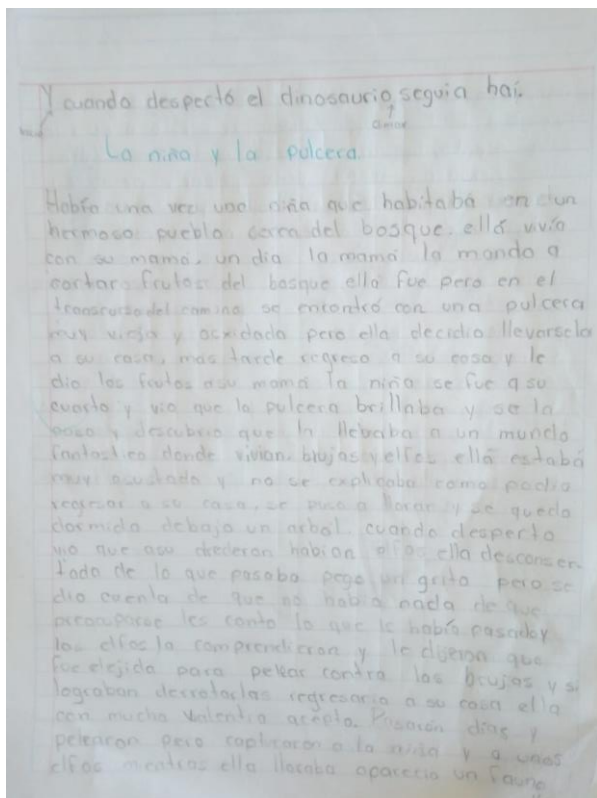 Y cuando despectó el dinosaurio, seguia haí.
amor
La niña y la pulcera.
Había una vez una niña que habitabá en un
hermoso pueblo cerca del bosque. ellá vivía
con su mamá. un dia la mamá la mando a
cortar frutos del bosque ella fue pero en el
transcurso del camino se encontró con una pulcera
muy vieja y ocxidada pero ella decidio llevarsela
a su casa. mas tarde regreso a su casa y le
dio los frutos a su mamá la niña se fue a su
cuarto y vio que la pulcera brillaba y se la
puso y descubrio que la llebaba a un mundo
fantastico donde vivian. brujas y elfos ellá estabá
muy asustada y no se explicaba como podia
regresar a su casa, se puso a llorar y se quedo
dormida debajo un arbol cuando desperto
vio que asu drederon habian elfos ella desconser
tada de lo que pasaba pego un grito pero se
dio cuenta de que no había nada de que
preocuparse les conto lo que le había pasado y
los elfos la comprendieron y le dijeron que
fue elejida para pelear contra las brujas y si
lograban derrotarlas regresaria a su casa ella
con mucha valentia acepto. Pasarón días y
pelearon pero capturaron a la niña y a unos
elfos mientras ella lloraba aparecio un fauno